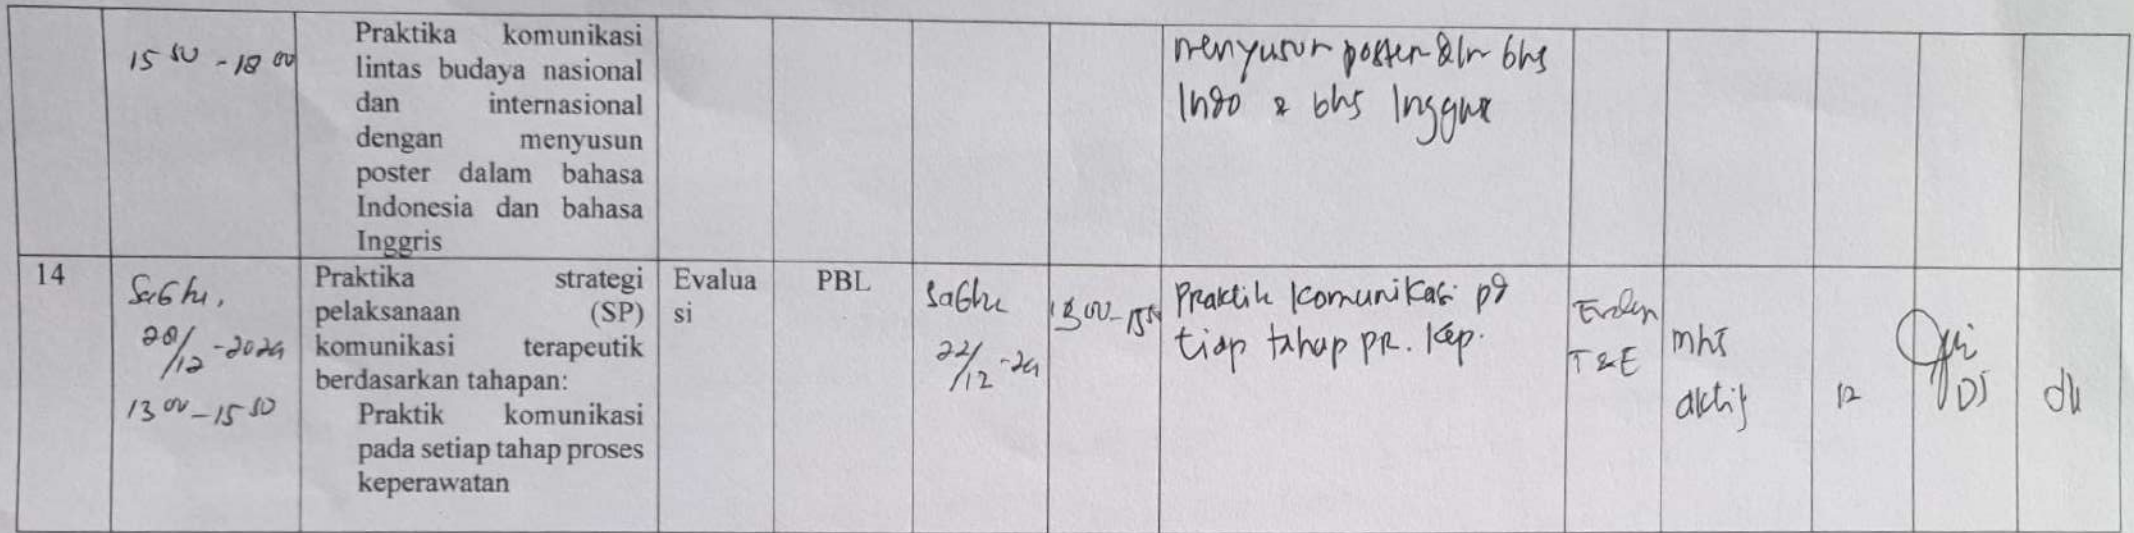 15 50 - 18 00
Praktika komunikasi
lintas budaya nasional
dan internasional
dengan menyusun
poster dalam bahasa
Indonesia dan bahasa
Inggris
menyusun poster dlm bhs
Indo & bhs Inggris
14
Sabtu,
/12 - 2024
13 00 - 15 50
Praktika strategi
pelaksanaan (SP)
komunikasi terapeutik
berdasarkan tahapan:
Praktik komunikasi
pada setiap tahap proses
keperawatan
Evalua
si
PBL
Sabtu
22/12 - 24
13 00 - 15
Praktik komunikasi pd
tiap tahap pr. kep.
T & E
mhs
aktif
12